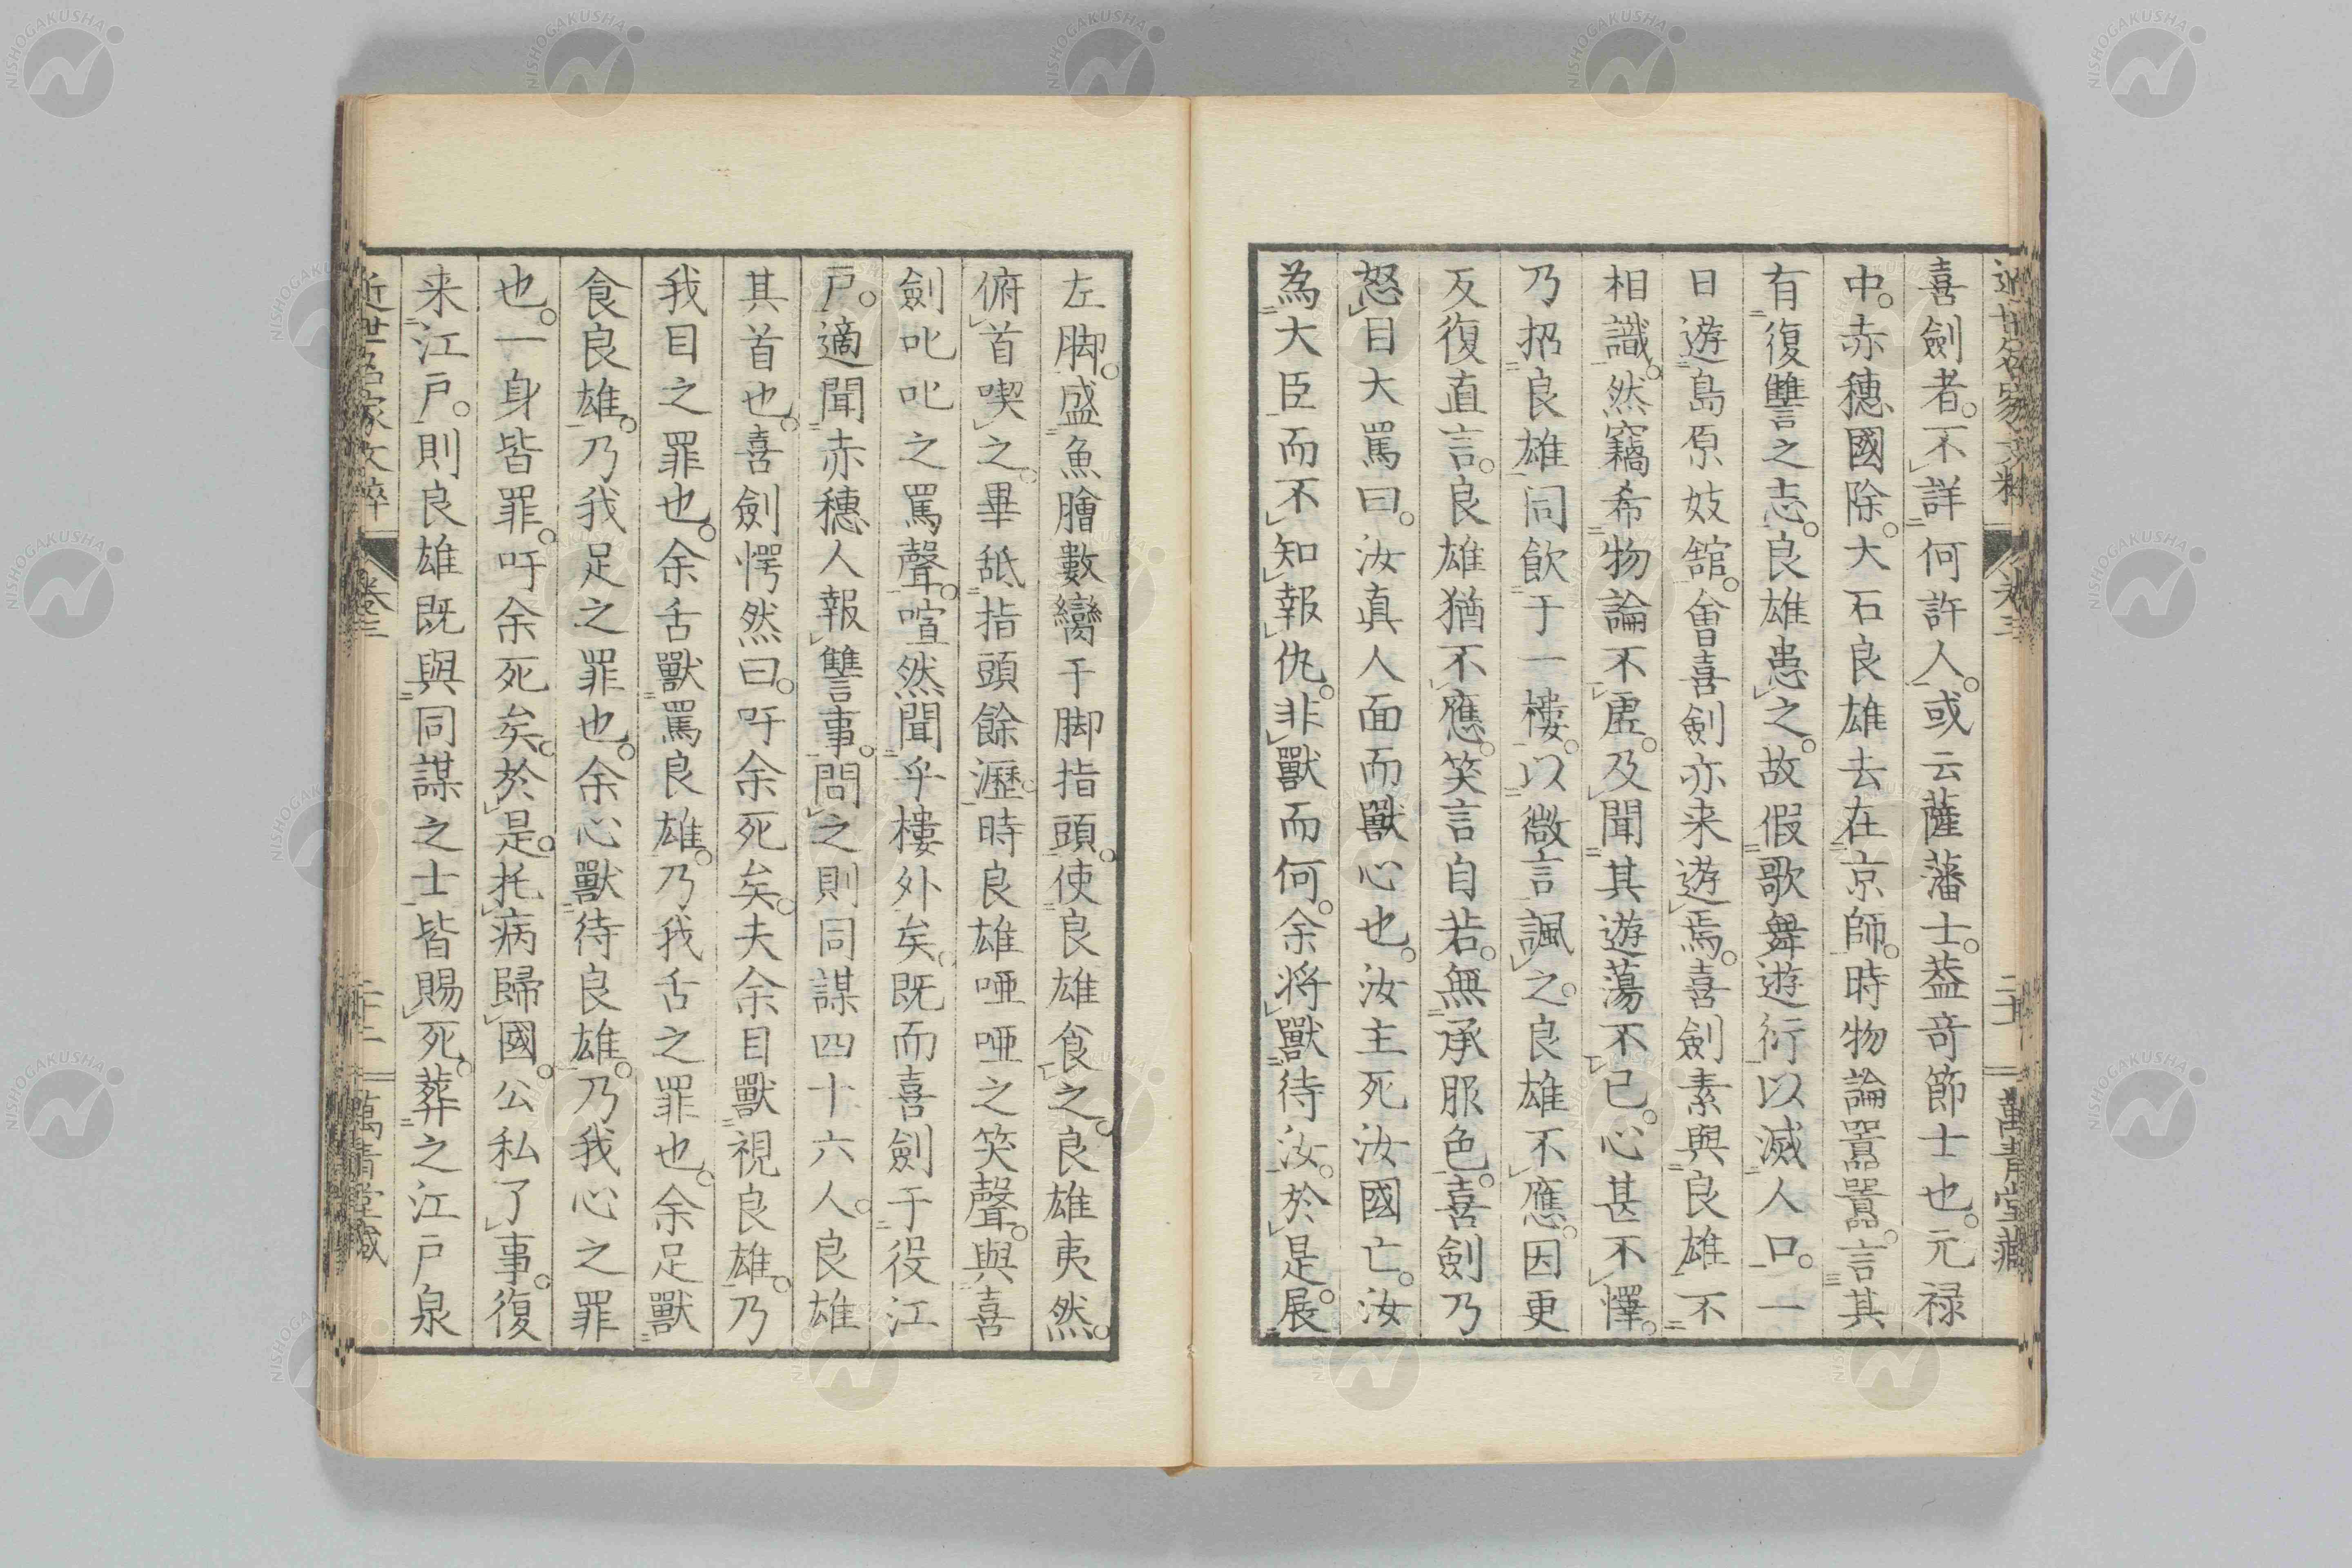 近世名家文粹 卷三 二十一 萬青堂藏
喜劍者。不詳何許人。或云薩藩士。蓋奇節士也。元禄
中。赤穗國除。大石良雄去在京師。時物論囂囂。言其
有復讐之志。良雄患之。故假歌舞遊衍以滅人口。一
日遊島原妓館。會喜劍亦来遊焉。喜劍素與良雄不
相識。然竊希物論不虚。及聞其遊蕩不已。心甚不懌。
乃招良雄同飲于一樓。以微言諷之。良雄不應。因更
反復直言。良雄猶不應。笑言自若。無承服色。喜劍乃
怒目大罵曰。汝真人面而獸心也。汝主死汝國亡。汝
為大臣而不知報仇。非獸而何。余将獸待汝。於是。展
左脚。盛魚膾數臠于脚指頭。使良雄食之。良雄夷然。
俯首喫之。畢舐指頭餘瀝。時良雄唖唖之笑聲。與喜
劍叱叱之罵聲。喧然聞乎樓外矣。既而喜劍于役江
戸。適聞赤穗人報讐事。問之則同謀四十六人。良雄
其首也。喜劍愕然曰。吁余死矣。夫余目獸視良雄。乃
我目之罪也。余舌獸罵良雄。乃我舌之罪也。余足獸
食良雄。乃我足之罪也。余心獸待良雄。乃我心之罪
也。一身皆罪。吁余死矣。於是。托病歸國。公私了事。復
来江戸。則良雄既與同謀之士皆賜死。葬之江戸泉
近世名家文粹 卷三 二十二 萬青堂藏
NISHOGAKUSHA